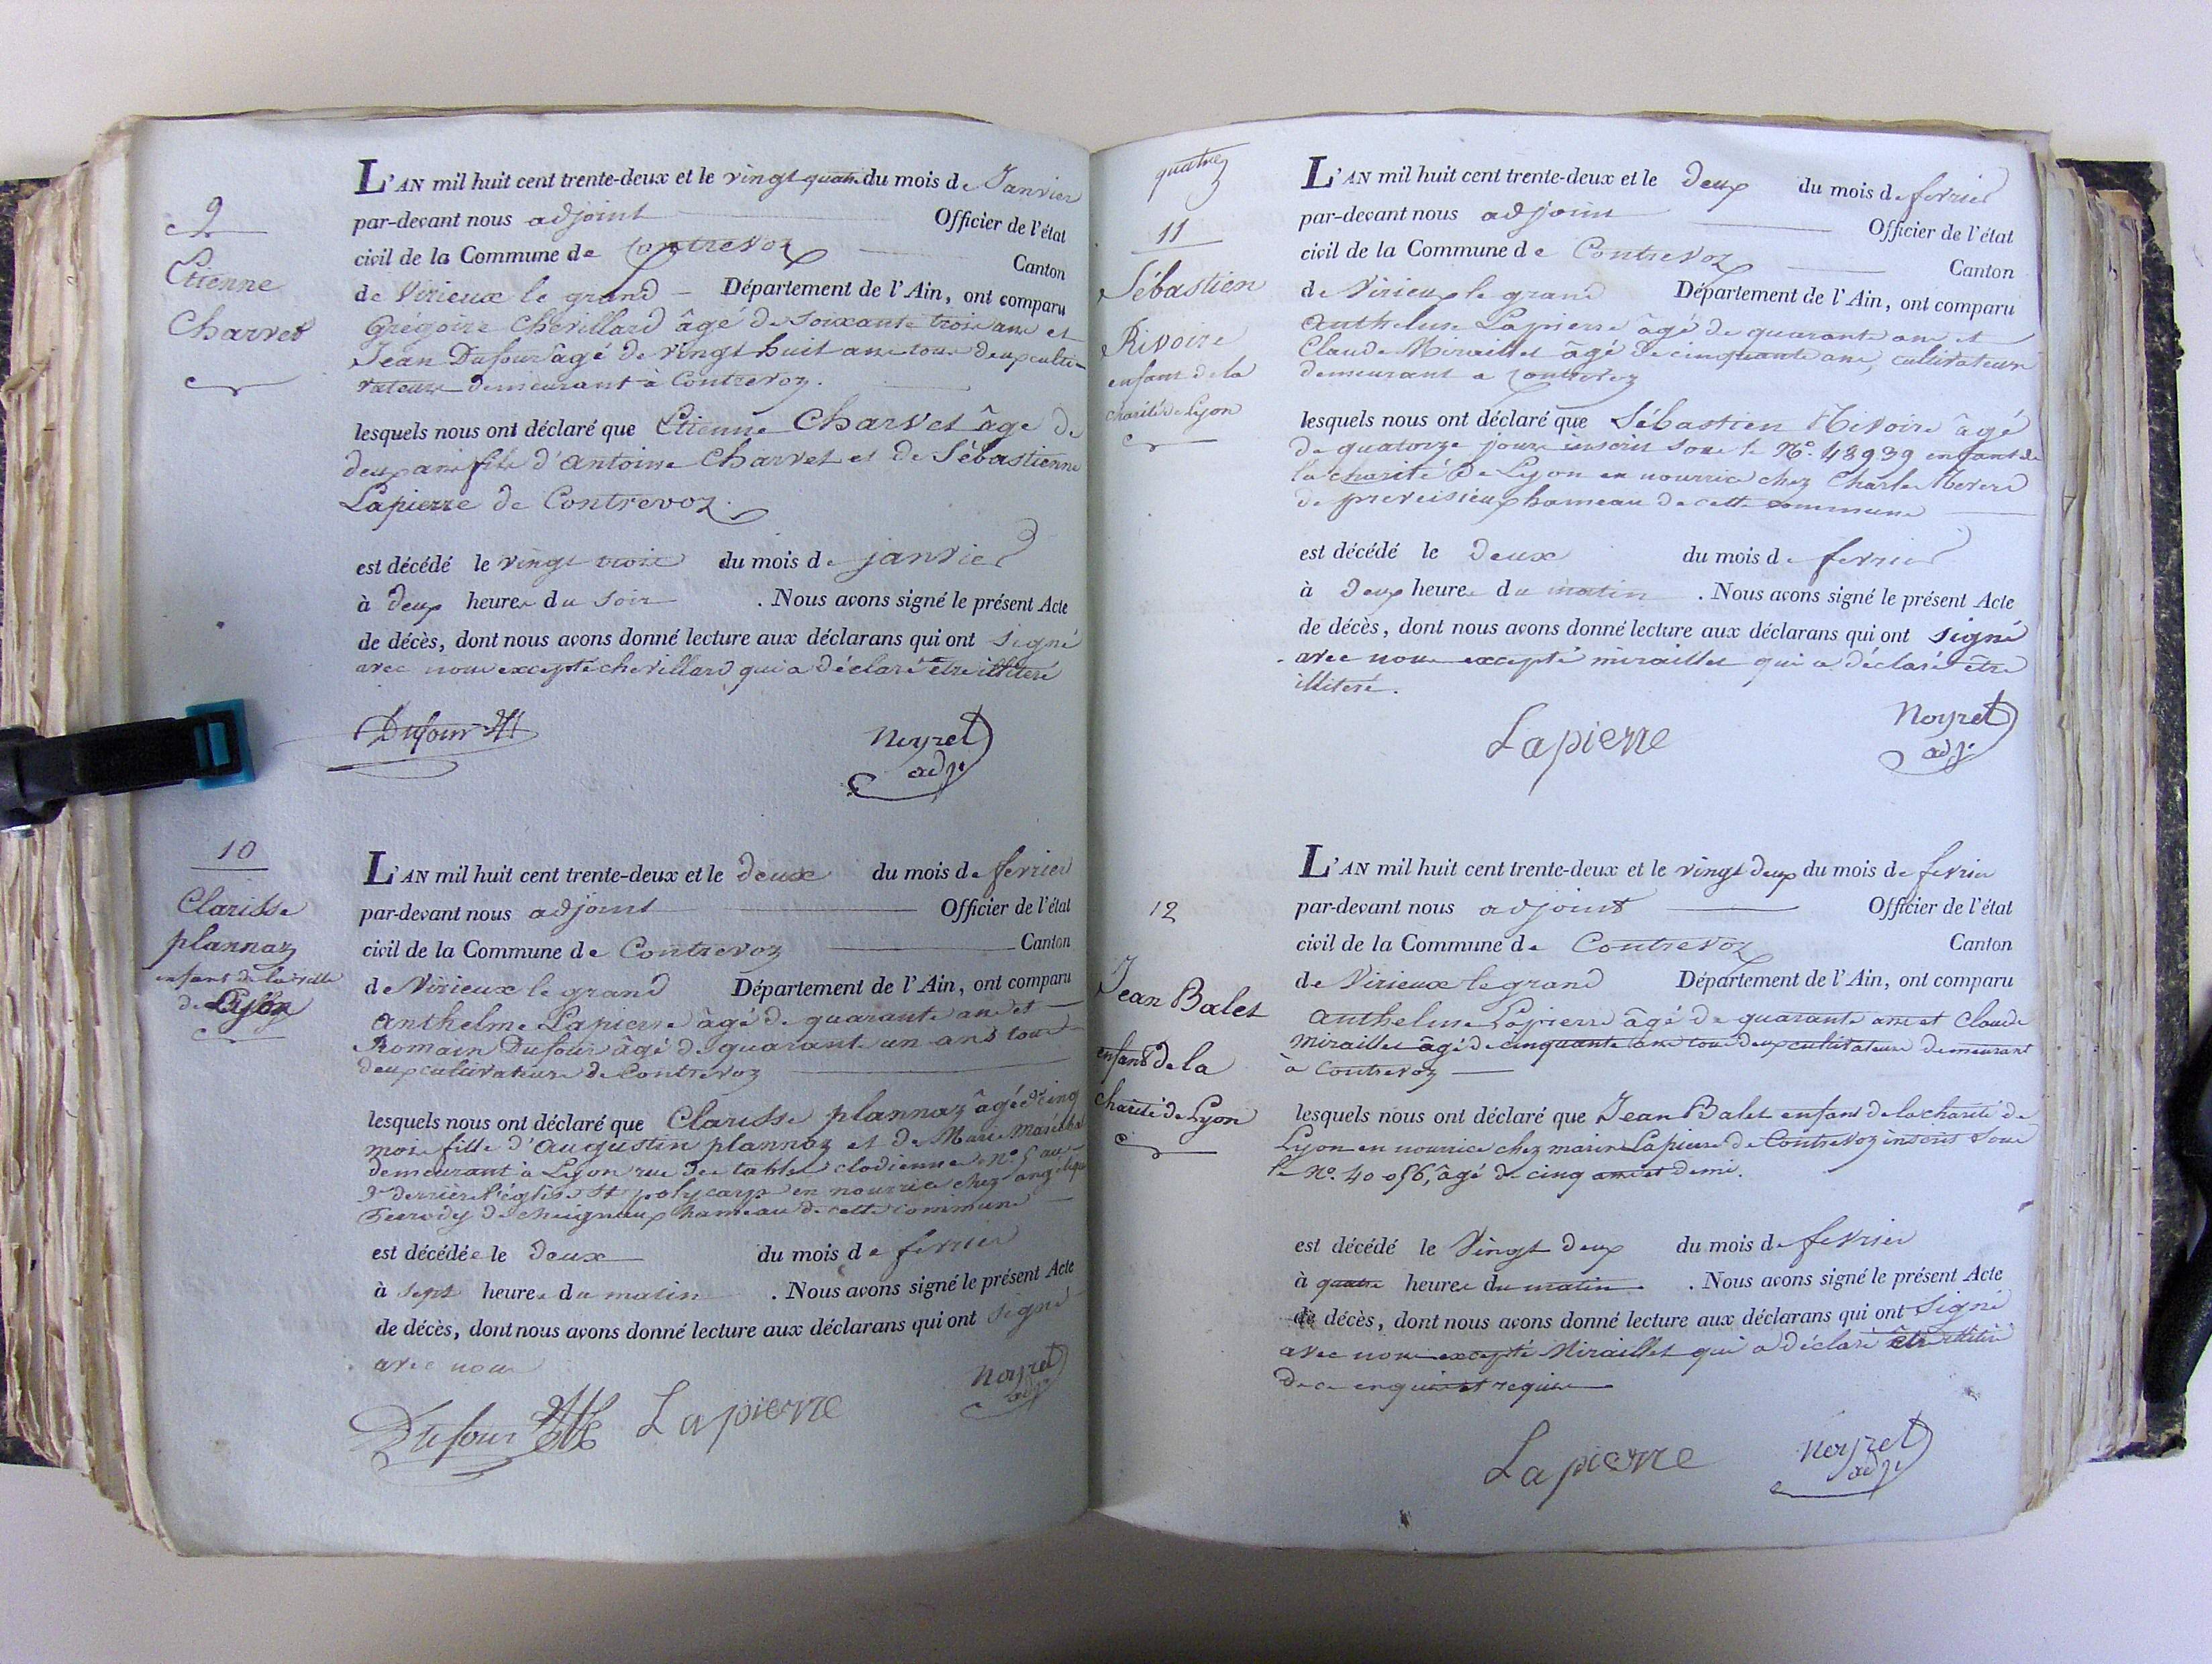 9
Etienne
Charvet
L'AN mil huit cent trente-deux et le vingt quatre du mois de Janvier
par-devant nous adjoint Officier de l'état
civil de la Commune de Contrevoz Canton
de Virieux le grand Département de l'Ain, ont comparu
Grégoire Chevillard âgé de soixante trois ans et
Jean Dufour âgé de vingt huit ans tous deux culti-
vateurs demeurant à Contrevoz.
lesquels nous ont déclaré que Etienne Charvet âgé de
deux ans fils d'antoine Charvet et de Sébastienne
Lapierre de Contrevoz.
est décédé le vingt trois du mois de janvier
à deux heures du soir . Nous avons signé le présent Acte
de décès, dont nous avons donné lecture aux déclarans qui ont signé
avec nous excepté chevillard qui a déclaré être illiteré
Dufour
Noyret
adj.
10
Clarisse
plannaz
enfant de la ville
de Lyon
L'AN mil huit cent trente-deux et le deux du mois de fevrier
par-devant nous adjoint Officier de l'état
civil de la Commune de Contrevoz Canton
de Virieux le grand Département de l'Ain, ont comparu
anthelme Lapierre âgé de quarante ans et
Romain Dufour âgé de quarante un ans tous
deux cultivateurs de Contrevoz
lesquels nous ont déclaré que Clarisse plannaz âgée de cinq
mois fille d'augustin plannaz et de Marie
demeurant à Lyon rue des tables clodiennes n° 5 au
derrière l'église St polycarpe en nourrice chez
de cheignieux hameau de cette commune
est décédée le deux du mois de fevrier
à sept heures du matin . Nous avons signé le présent Acte
de décès, dont nous avons donné lecture aux déclarans qui ont signé
avec nous
Dufour Lapierre
Noyret
adj.
quatre
11
Sébastien
Rivoire
enfant de la
charité de Lyon
L'AN mil huit cent trente-deux et le deux du mois de fevrier
par-devant nous adjoint Officier de l'état
civil de la Commune de Contrevoz Canton
de Virieux le grand Département de l'Ain, ont comparu
Anthelme Lapierre âgé de quarante ans et
Claude Miraillet âgé de cinquante ans, cultivateurs
demeurant a Contrevoz
lesquels nous ont déclaré que Sébastien Rivoire âgé
de quatorze jours inscrit sous le N°. 48939 enfant de
la charité de Lyon en nourrice chez Charles
de preveisieux hameau de cette commune
est décédé le deux du mois de fevrier
à deux heures du matin . Nous avons signé le présent Acte
de décès, dont nous avons donné lecture aux déclarans qui ont signé
avec nous excepté miraillet qui a déclaré être
illiteré.
Lapierre
Noyret
adj.
12
Jean Balet
enfant de la
charité de Lyon
L'AN mil huit cent trente-deux et le vingt deux du mois de fevrier
par-devant nous adjoint Officier de l'état
civil de la Commune de Contrevoz Canton
de Virieux le grand Département de l'Ain, ont comparu
anthelme Lapierre âgé de quarante ans et Claude
Miraillet âgé de cinquante ans tous deux cultivateurs demeurant
à Contrevoz
lesquels nous ont déclaré que Jean Balet enfant de la charité de
Lyon en nourrice chez marin Lapierre de Contrevoz inscrit sous
le N°. 40056, âgé de cinq ans et demi.
est décédé le Vingt deux du mois de fevrier
à quatre heures du matin . Nous avons signé le présent Acte
de décès, dont nous avons donné lecture aux déclarans qui ont signé
avec nous excepté Miraillet qui a déclaré être illiteré
de ce enquis et requis
Lapierre
Noyret
adj.